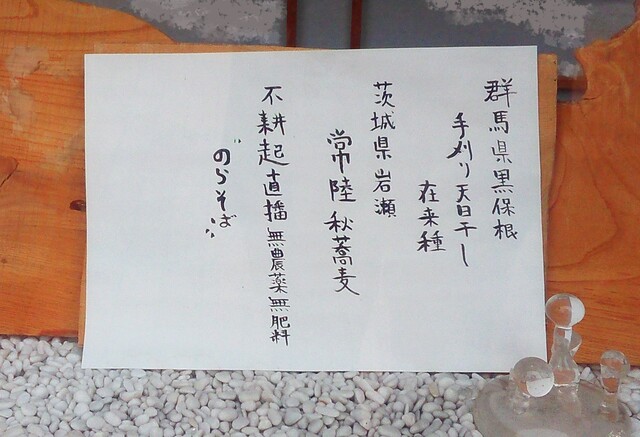 群馬県黒保根
手刈り天日干し
在来種
茨城県岩瀬
常陸秋蕎麦
不耕起直播無農薬無肥料
〝のらそば〟